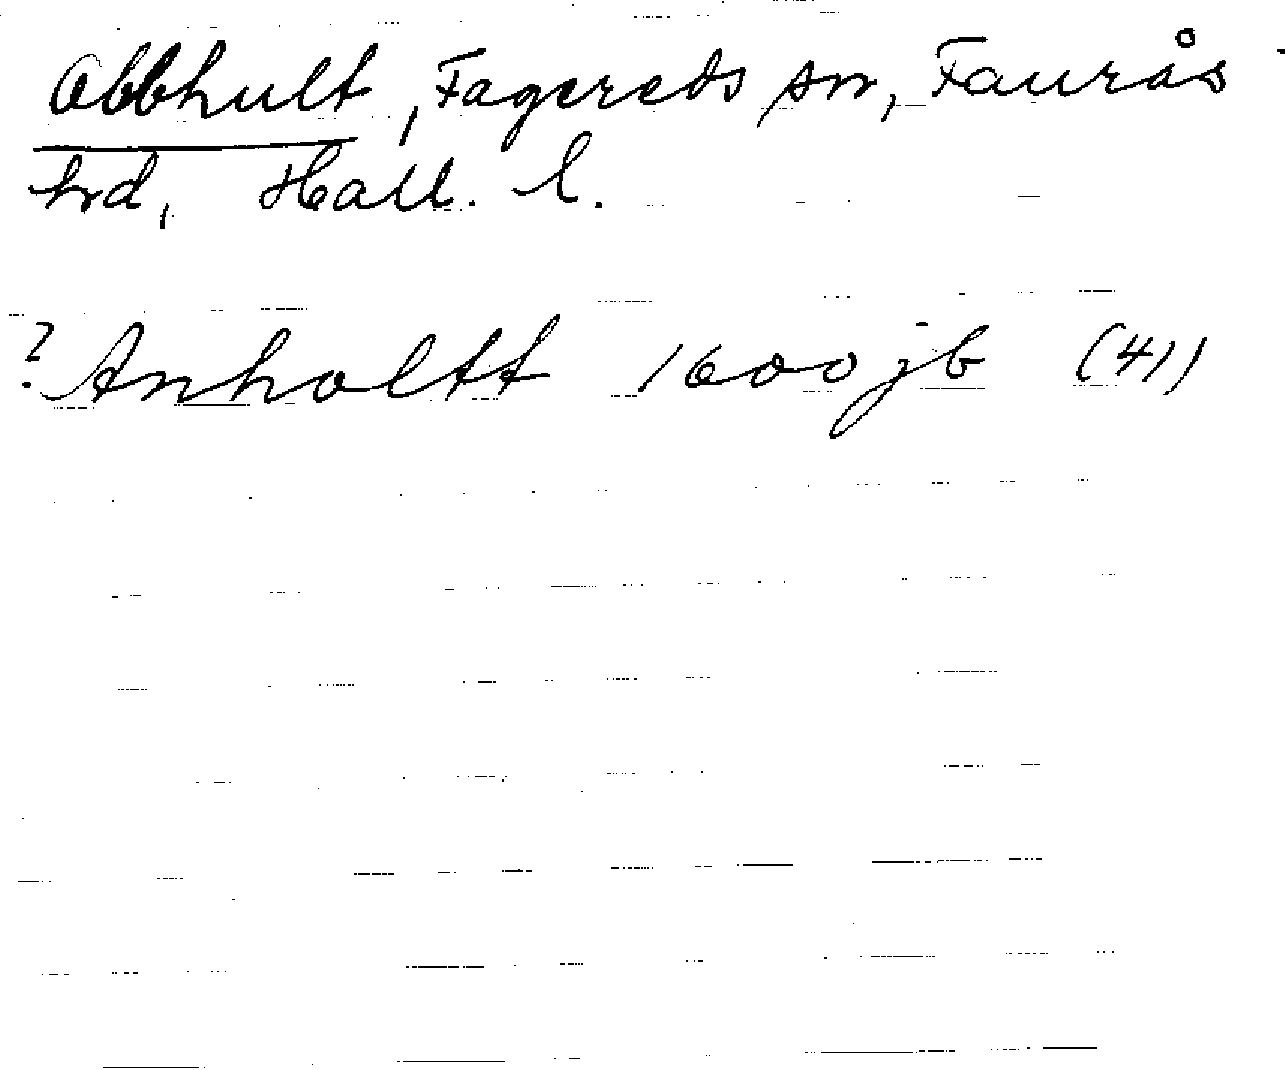 Abbhult, Fagereds sn, Faurås
hrd, Hall. l.
? Anholtt 1600 jb (41)